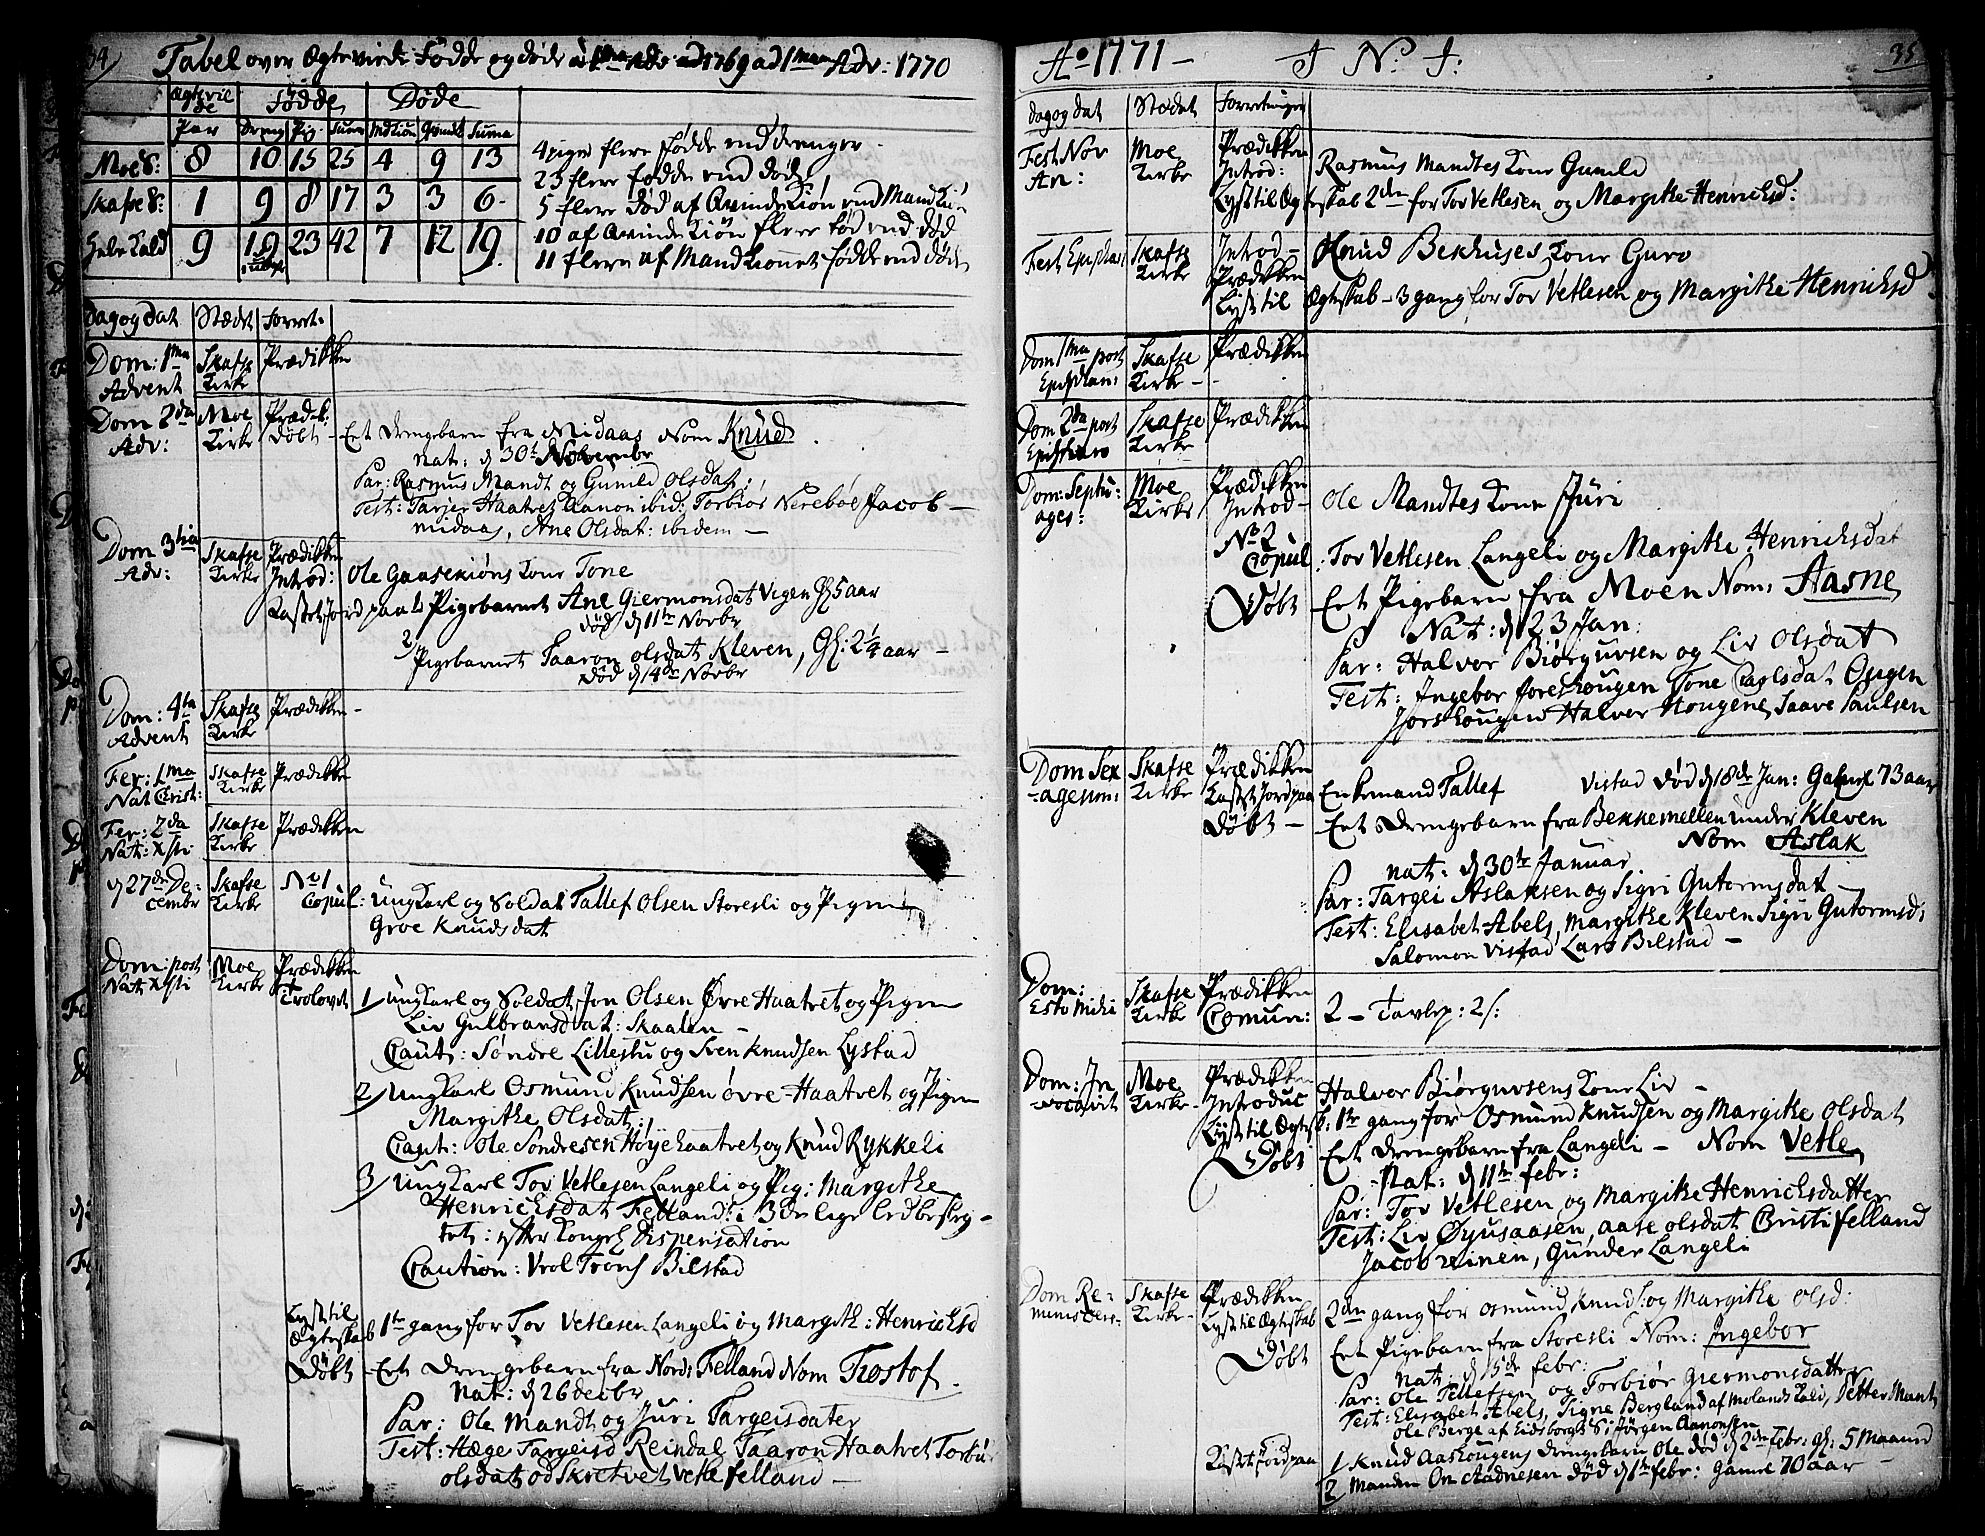 34
Tabel over Ægtevirde Fødde og døde a 1ma Adv: ad 1769 ad 1mam Adv: 1770
Ægtevil de Fødde Døde
Par Dreng Pig Suma Mdkiön Qvindk Summa
Moe S: 8 10 15 25 4 9 13
Skafse S: 1 9 8 17 3 3 6
Hele Kald 9 19 23 42 7 12 19
4 piger flere fødde end drenger
23 flere fødde end døde
5 flere død af QvindeKiøn end MandKiön
10 af QvindeKiön flere fød end død
11 flere af MandKiønnet fødde end døde
Dag og dat Stædet Forret:
Dom: 1ma Advent Skafse Kirke Prædikken
Dom 2da Adv: Moe Kirke Prædik: Døbt - Eet Drengebarn fra Midaas Nom Knud
nat: d 30t Novembr
Par: Rasmus Mandt og Gunild Olsdat:
Test: Tarjer Haatvet Aanon ibid: Torbiør Nerebøe Jacob
midaas, Ane Olsdat: ibidem -
Dom 3tia Adv: Skafse Kirke Prædikken
Introd: Ole Gaasekiøns Kone Tone
Kastet Jord paa 1 Pigebarnet Ane Giermonsdat Vigen Gl 5 aar
død d 11te Novbr
2 Pigebarnet Taaron olsdat Kleven, Gl: 2 1/4 aar -
død d 14de Novbr
Dom: 4ta Advent Skafse Kirke Prædikken -
Fer: 1ma Nat Christ: Skafse Kirke Prædikken
Fer: 2da Nat: Xsti Skafse Kirke Prædikken
d 27de Decembr Skafse Kirke No 1 Copul: Ungkarl og Soldat Tallef Olsen Storesli og Pigen
Groe Knudsdat
Dom: post Nat: Xsti Moe Kirke Prædikken
Trolovet 1/ Ungkarl og Soldat Jon Olsen Øvre Haatvet og Pigen
Liv Gulbransdat: Skaalen -
Caut: Søndre Lillestu og Sven Knudsen Lystad
2/ Ungkarl Osmund Knudsen øvre-Haatvet og Pigen
Margithe Olsdat:
Caut: Ole Sondresen Høyehaatvet og Knud Rykkeli
3/ Ungkarl Tor Vetlesen Langeli og Pig: Margithe
Henrichsdat Felland: i 3die lige led beslegtet
: efter Kongel Dispensation
Caution: Vrol Trons Bilstad
Lyst til Ægteskab 1te gang for Tor Vetlesen Langeli og Margith: Henricksd
Døbt - Eet Drengebarn fra Nord: Felland Nom Trostof
nat: d 26 decbr
Par: Ole Mandt og Juri Targeisdater
Test: Hæge Targeisd Reindal Taaron Haatvet Torbiør
olsdat od Skretvet vetle felland -
Ao 1771 - J N: J: 35
Dag og dat Stædet Forretninger
Fest Nov An: Moe Kirke Prædikken
Introd: Rasmus Mandtes Kone Gunild
Lyst til Ægteskab 2den for Tor Vetlesen og Margithe Henrichsd:
Fest Epiphan: Skafse Kirke Introd - Knud Bekhuses Kone Guro
Prædikken
Lyst til Ægteskab - 3 gang for Tor Vetlesen og Margithe Henricksd
Dom 1ma post Epiphan: Skafse Kirke - Prædikken
Dom 2da post Epiphan Skafse Kirke Prædikken
Dom: Septuages: Moe Kirke Prædikken
Introd - Ole Mandtes Kone Juri
No 2 Copul: Tor Vetlesen Langeli og Margithe Henrichsdat
Døbt Eet Pigebarn fra Moen Nom: Aasne
Nat: d 23 Jan:
Par: Halvor Biørguvsen og Liv Olsdat
Test: Ingebor foreshougen Tone Olsdat Ougen
Halvor Hougene, Saave Paulsen
Dom Sexagesim: Skafse Kirke Prædikken
Kastet Jord paa Enkemand Tallef Vistad død d 8de Jan: Gamel 73 aar
Døbt - Eet Drengebarn fra Bekkemellen under Kleven
Nom Aslak
nat: d 30te Januar
Par: Targei Aslaksen og Sigri Gutormsdat
Test: Elisabet Abels, Margithe Kleven Sigri Gutormsd:
Salomon Vistad Lars Bilstad -
Dom: Esto Mihi Skafse Kirke Prædikken
Comun: 2 - Tavlep: 2 /:
Dom: Invocavit Moe Kirke - Prædikken
Introduc Halvor Biørguvsens Kone Liv -
Lyst til Ægtesk: 1te gang for Osmund Knudsen og Margithe Olsdat
Døbt Eet Drengebarn fra Langeli - Nom Vetle
Nat: d 11te febr:
Par: Tor Vetlesen og Margithe Henrichsdatter
Test: Liv Øyusaasen, aase olsdat Cristi felland
Jacob Veinen, Gunder Langeli
Dom Reminiscere: Skafse Kirke - Prædikken
Lyst til Ægteskab 2den gang for Osmund Knuds: og Margithe Olsd:
Døbt Eet Pigebarn fra Storesli Nom: Ingebor
nat: d 15de febr:
Par: Ole Tellefsen og Torbiør Giermonsdatter
Test: Elisabet Abels, Signe Bergland af Molands Kald, Petter Mant
ole Berge af Eidsborgs S: Jørgen Aanonsen
Kastet Jord paa 1 Knud Aashougens drengebarn Ole død d 2den febr: gl: 5 Maaned
2 Manden On Aadnesen død d 1te febr: gamel 70 aar -